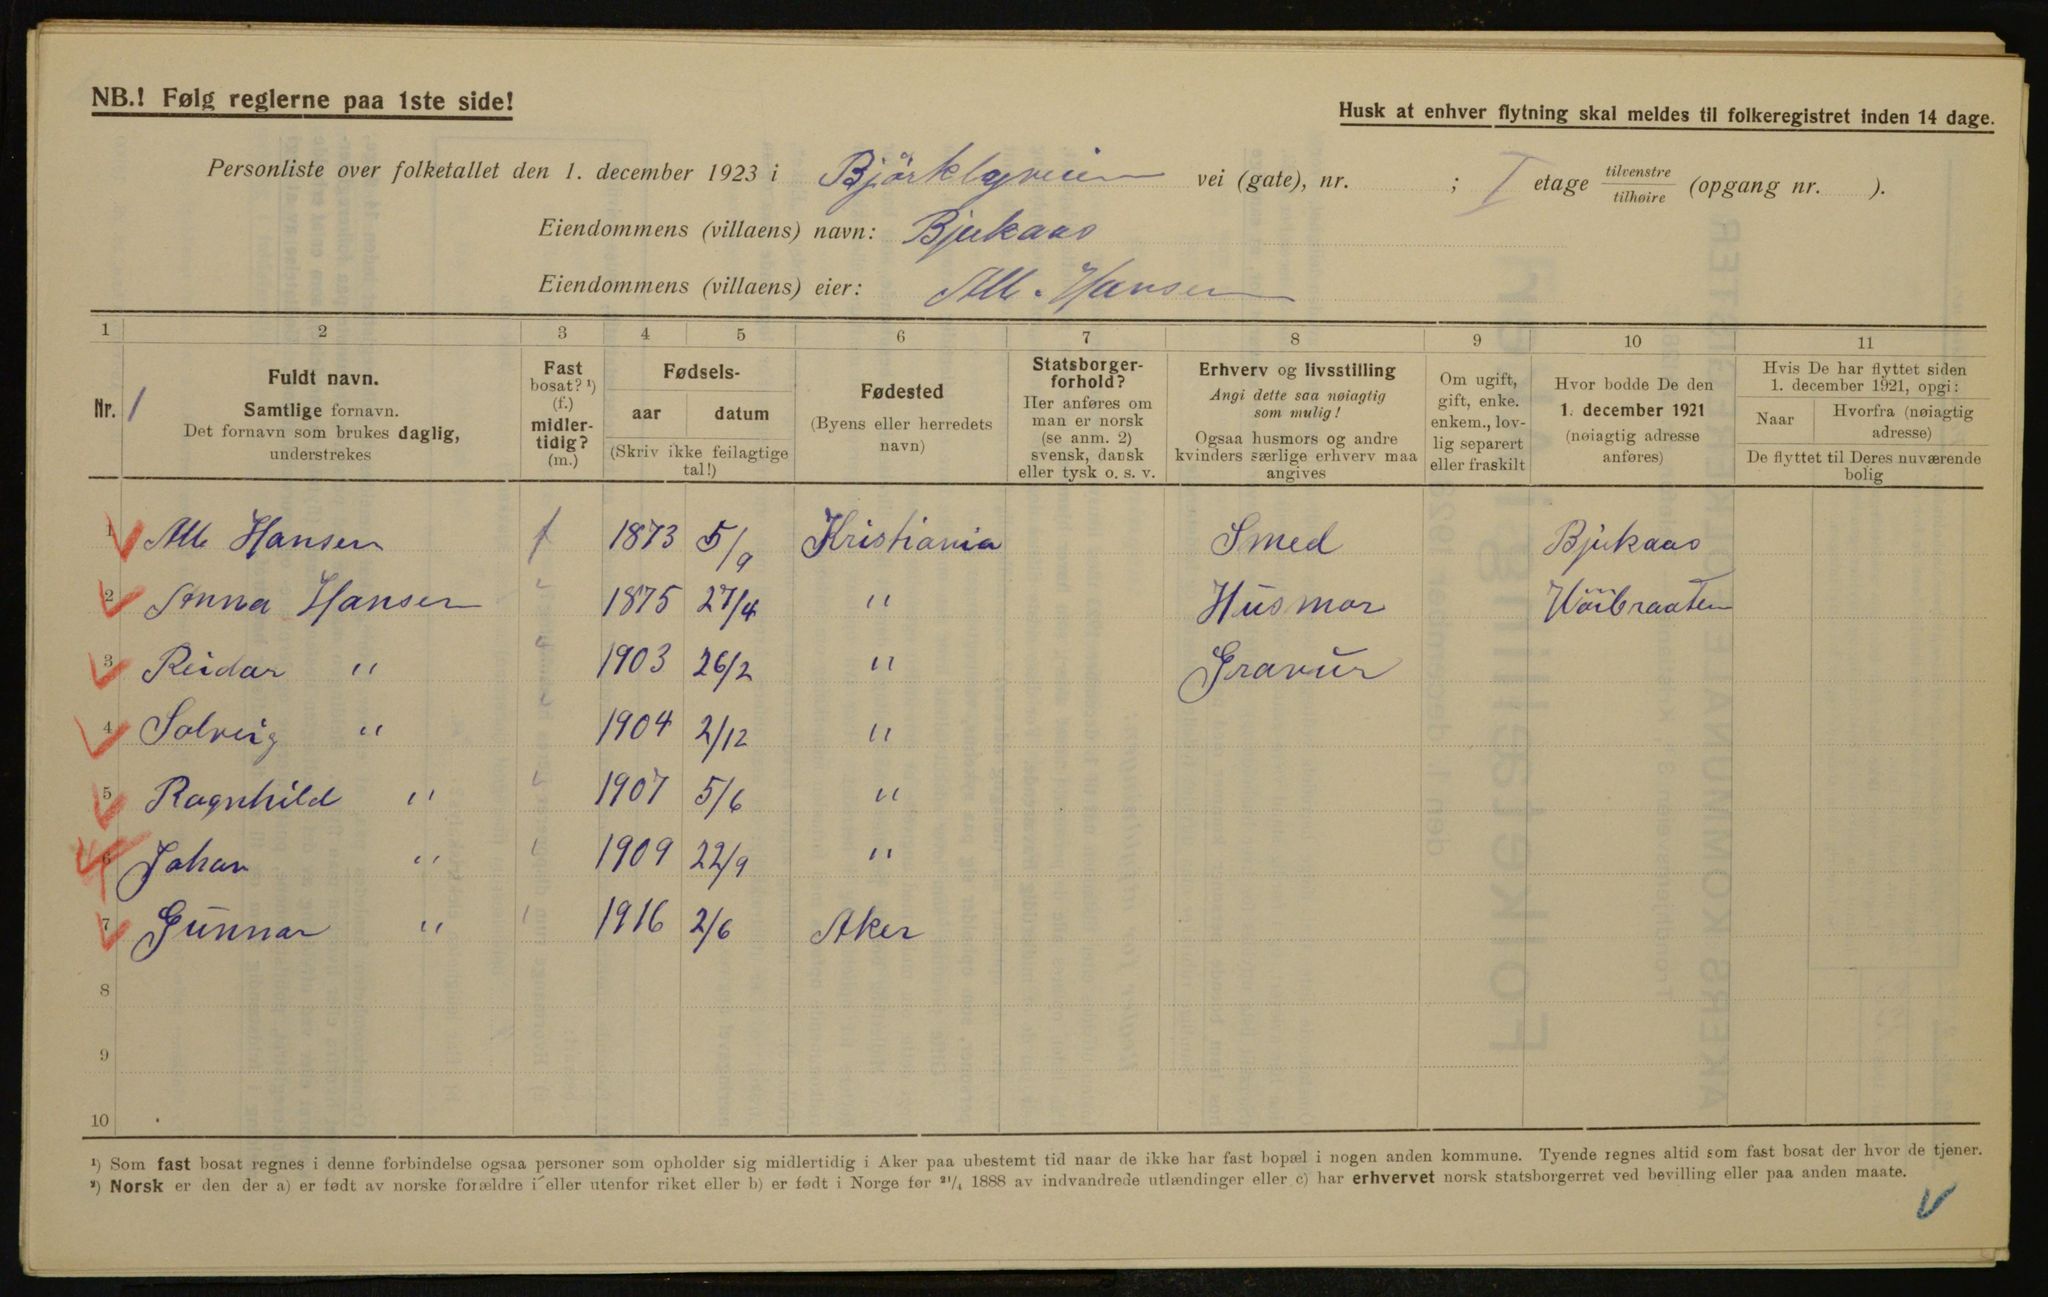 NB.! Følg reglerne paa 1ste side!
Husk at enhver flytning skal meldes til folkeregistret inden 14 dage.
Personliste over folketallet den 1. december 1923 i Björklyveien vei (gate), nr. ; I etage tilvenstre/tilhøire (opgang nr. ).
Eiendommens (villaens) navn: Bjerkaas
Eiendommens (villaens) eier: Hansen
1 2 3 4 5 6 7 8 9 10 11
Nr. 1
Fuldt navn.
Samtlige fornavn.
Det fornavn som brukes daglig,
understrekes
Fast
bosat? ¹)
(f.)
midler-
tidig?
(m.)
Fødsels-
aar datum
(Skriv ikke feilagtige
tal!)
Fødested
(Byens eller herredets
navn)
Statsborger-
forhold?
Her anføres om
man er norsk
(se anm. 2)
svensk, dansk
eller tysk o. s. v.
Erhverv og livsstilling
Angi dette saa nøiagtig
som mulig!
Ogsaa husmors og andre
kvinders særlige erhverv maa
angives
Om ugift,
gift, enke.
enkem., lov-
lig separert
eller fraskilt
Hvor bodde De den
1. december 1921
(nøiagtig adresse
anføres)
Hvis De har flyttet siden
1. december 1921, opgi:
Naar Hvorfra (nøiagtig
adresse)
De flyttet til Deres nuværende
bolig
1 Hansen f 1873 5/9 Kristiania Smed Bjerkaas
2 Anna Hansen " 1875 27/4 " Husmor
3 Reidar " " 1903 26/2 " Gravür
4 Solveig " " 1904 2/12 "
5 Ragnhild " " 1907 5/6 "
6 Johan " " 1909 22/9 "
7 Gunnar " " 1916 2/6 Aker
8
9
10
¹) Som fast bosat regnes i denne forbindelse ogsaa personer som opholder sig midlertidig i Aker paa ubestemt tid naar de ikke har fast bopæl i nogen anden kommune. Tyende regnes altid som fast bosat der hvor de tjener.
²) Norsk er den der a) er født av norske forældre i eller utenfor riket eller b) er født i Norge før ²¹/₄ 1888 av indvandrede utlændinger eller c) har erhvervet norsk statsborgerret ved bevilling eller paa anden maate.